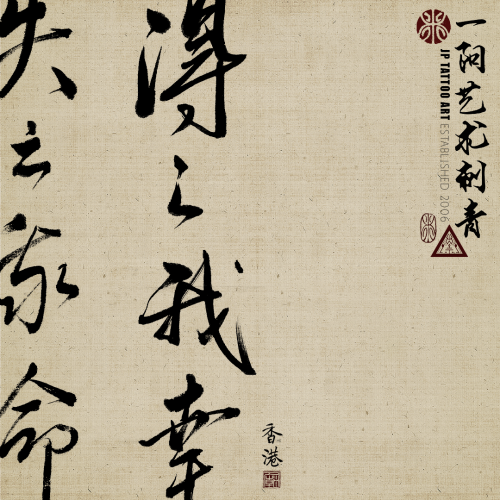 一阳艺术刺青
JP TATTOO ART ESTABLISHED 2006
得之我幸
失之我命
香港